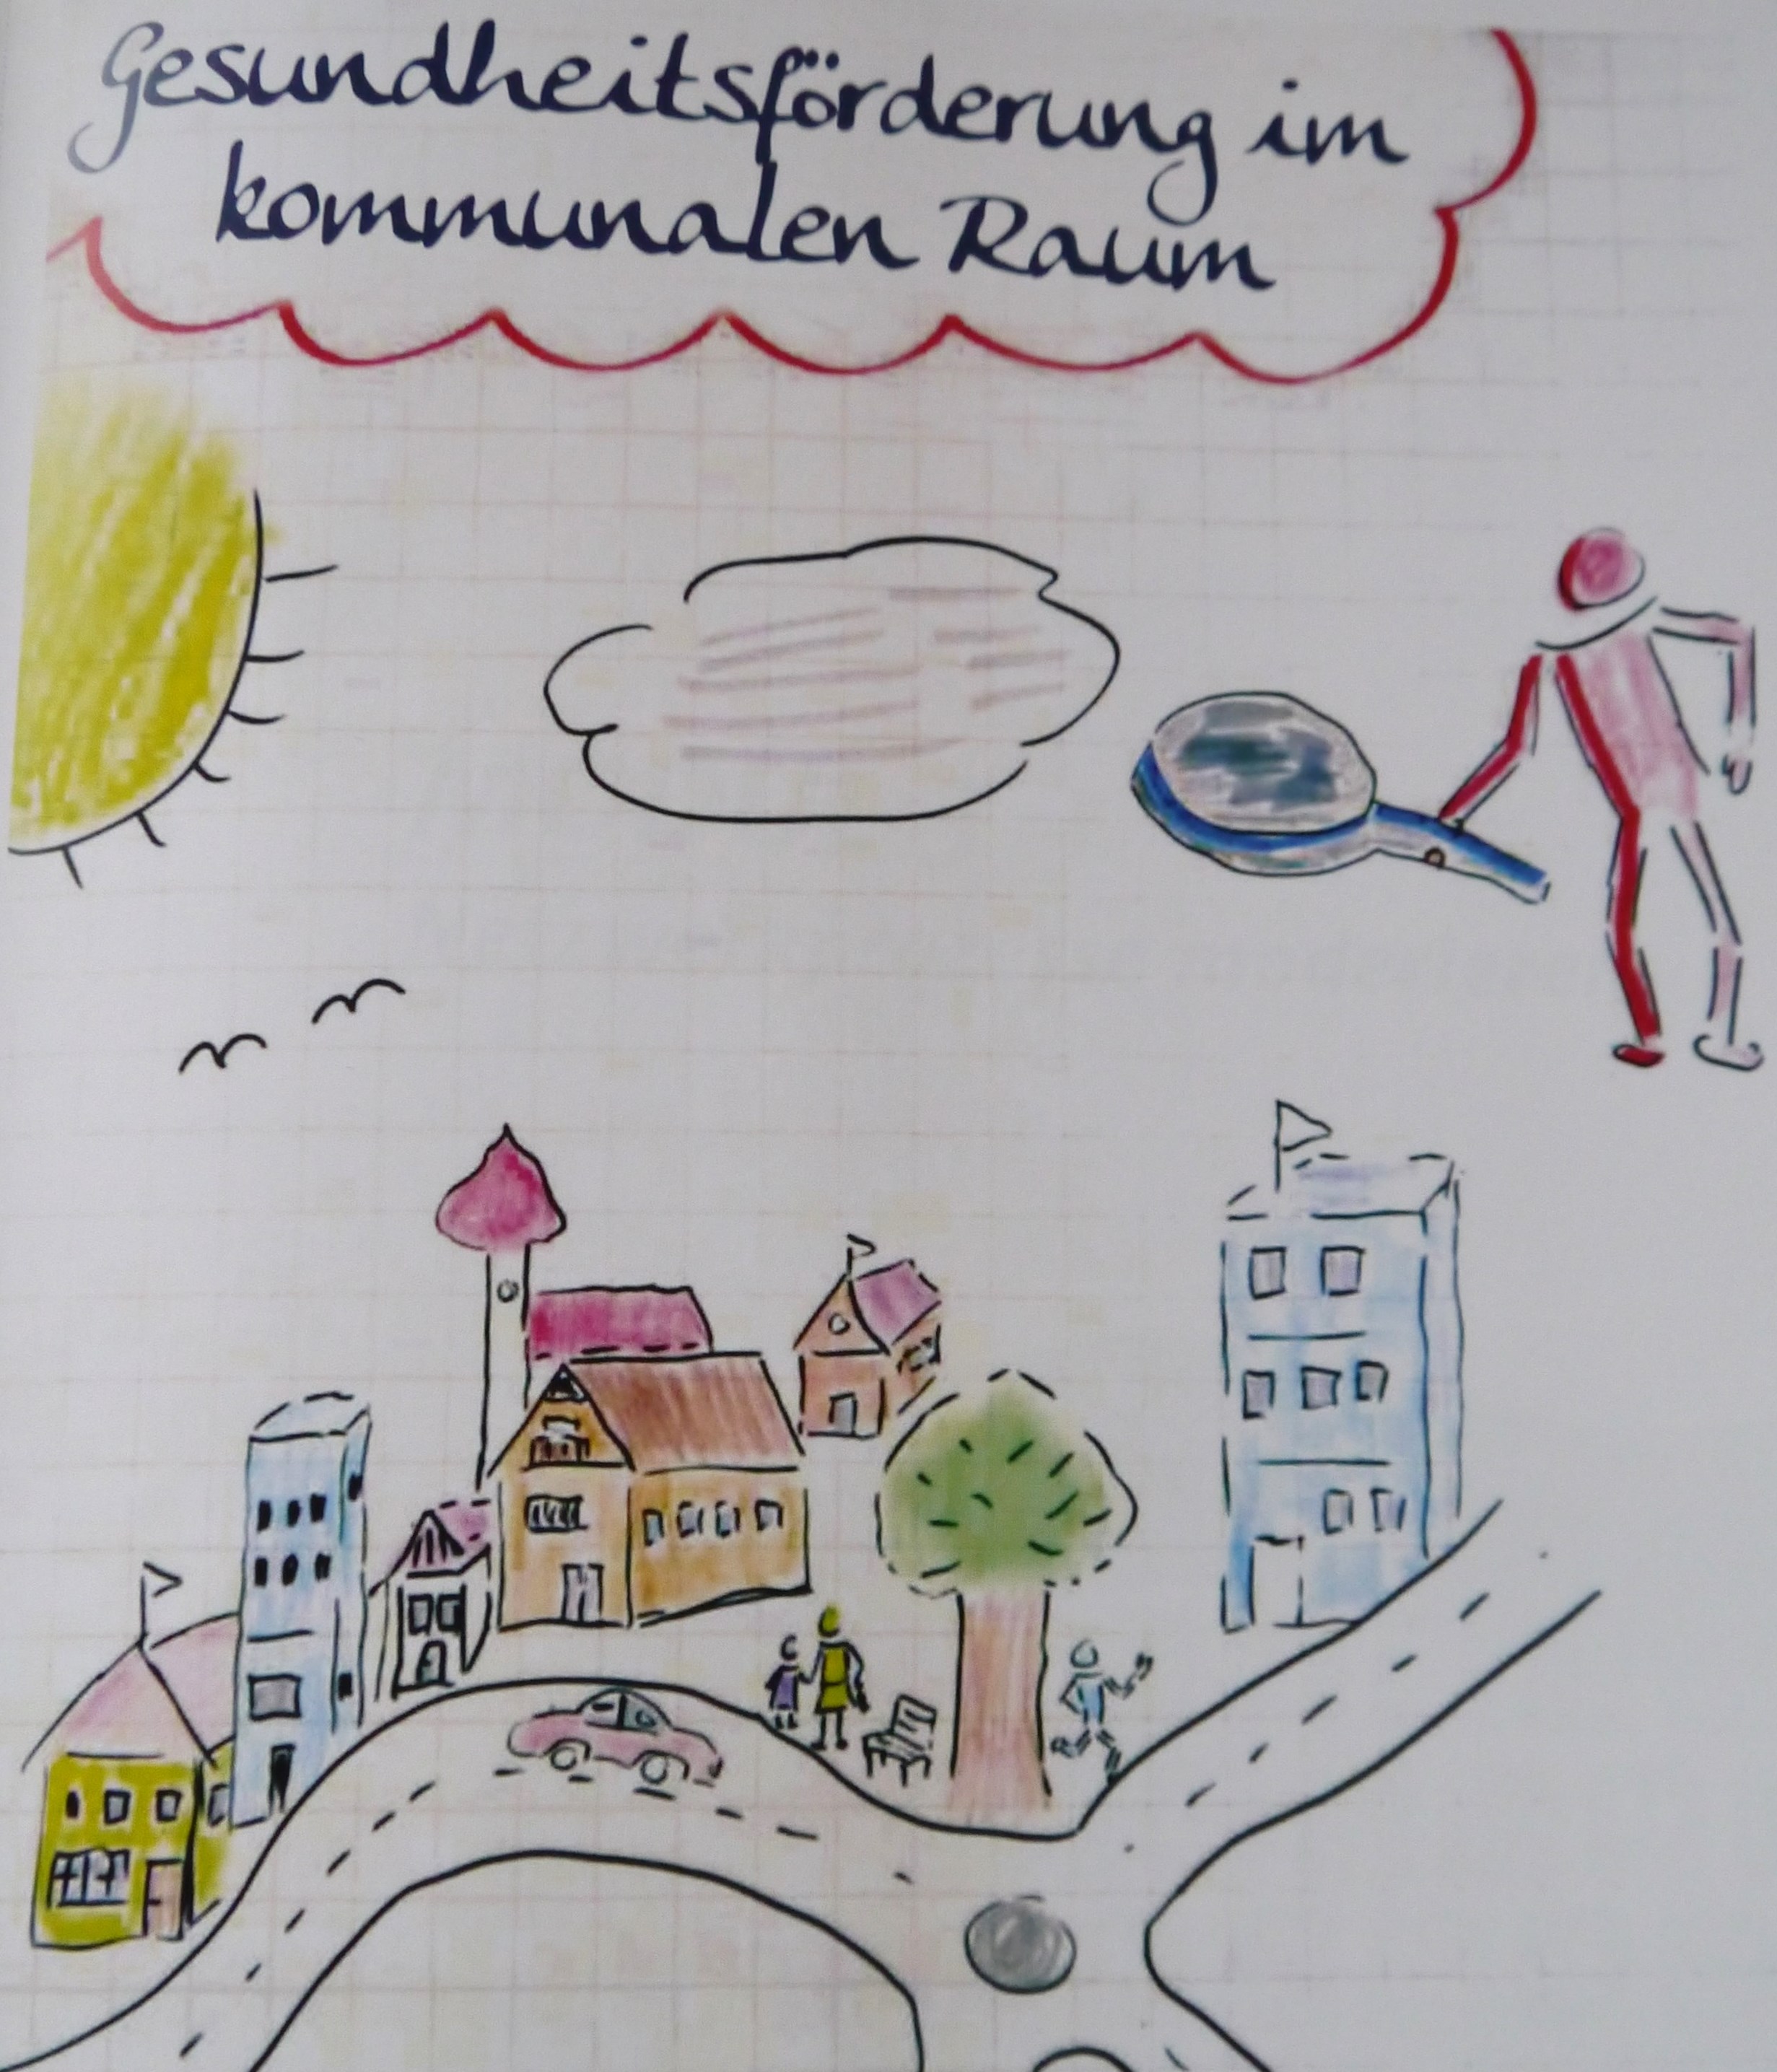 Gesundheitsförderung im
kommunalen Raum